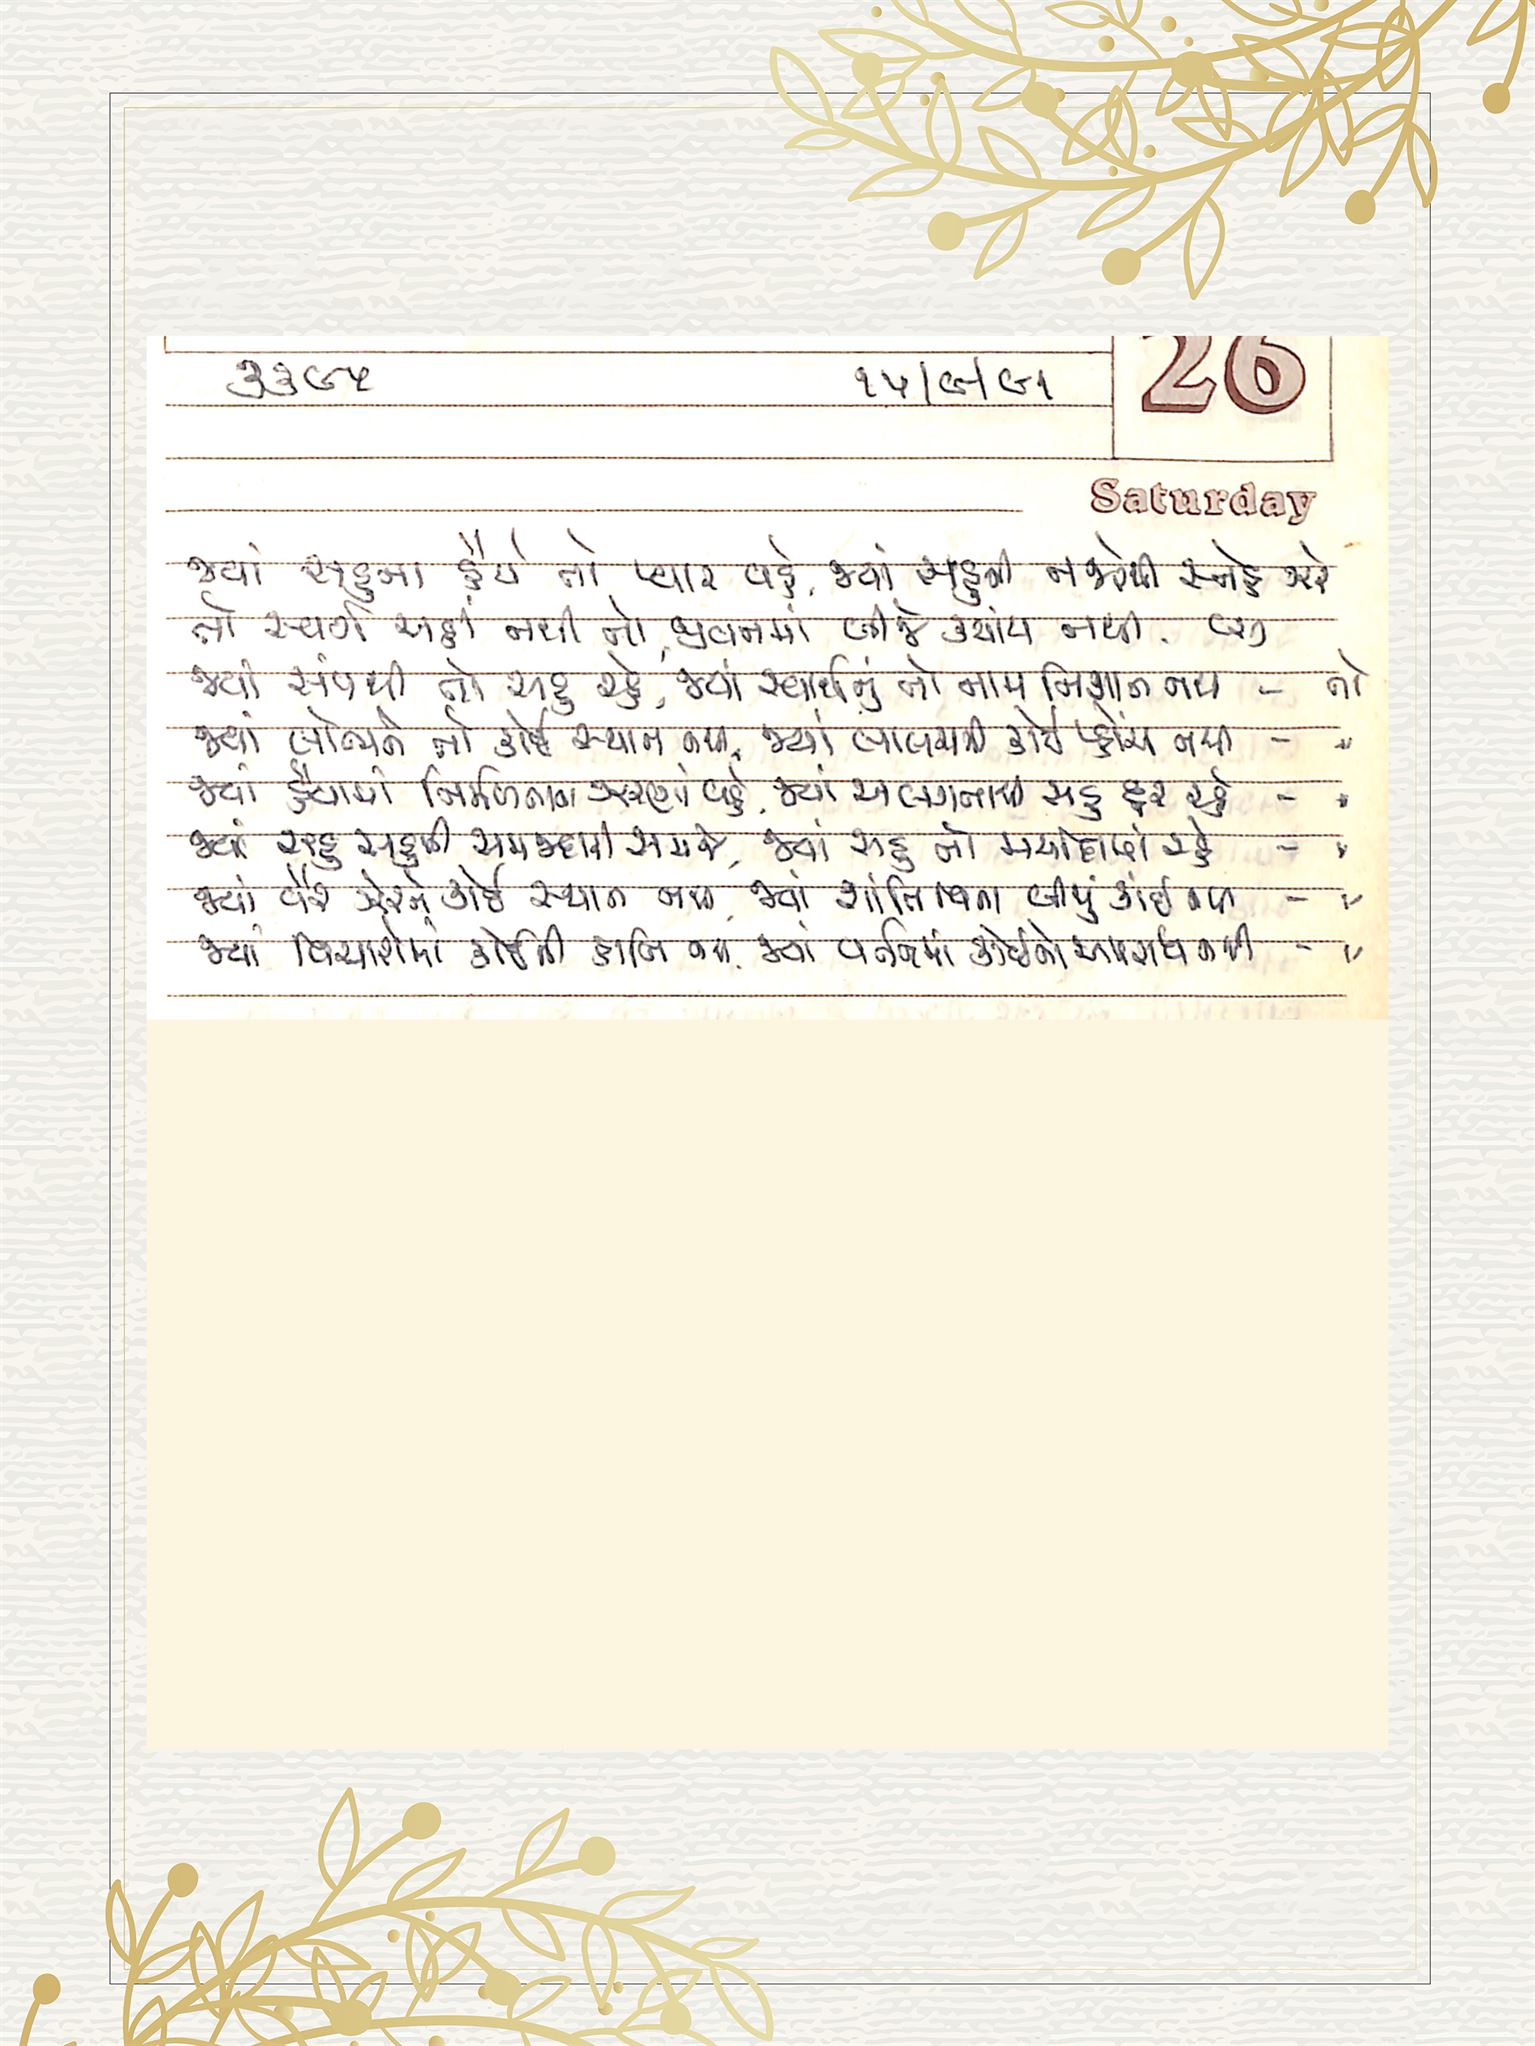 ૩૩૯૫ ૧૫/૯/૯૧ 26
Saturday
જ્યાં સહુના હૈયે તો પ્યાર વહે, જ્યાં સહુની નજરેથી સ્નેહ ઝરે
તો સ્વર્ગ અહીં નથી તો, ભુવનમાં બીજે ક્યાંય નથી.
જ્યાં સંપથી તો સહુ રહે, જ્યાં સ્વાર્થનું તો નામ નિશાન નથી - તો
જ્યાં લોભને તો કોઈ સ્થાન નથી, જ્યાં લાલચની કોઈ પહોંચ નથી - "
જ્યાં હૈયામાં નિર્મળતાના ઝરણાં વહે, જ્યાં અલગતાથી સહુ દૂર રહે - "
જ્યાં સહુ સહુની સમજદારી સમજે, જ્યાં સહુ તો મર્યાદામાં રહે - "
જ્યાં વેર ઝેરને કોઈ સ્થાન નથી, જ્યાં શાંતિ વિના બીજું કાંઈ નથી - "
જ્યાં વિચારોમાં કોઈની હાનિ નથી, જ્યાં વર્તનમાં કોઈનો અપરાધ નથી - "